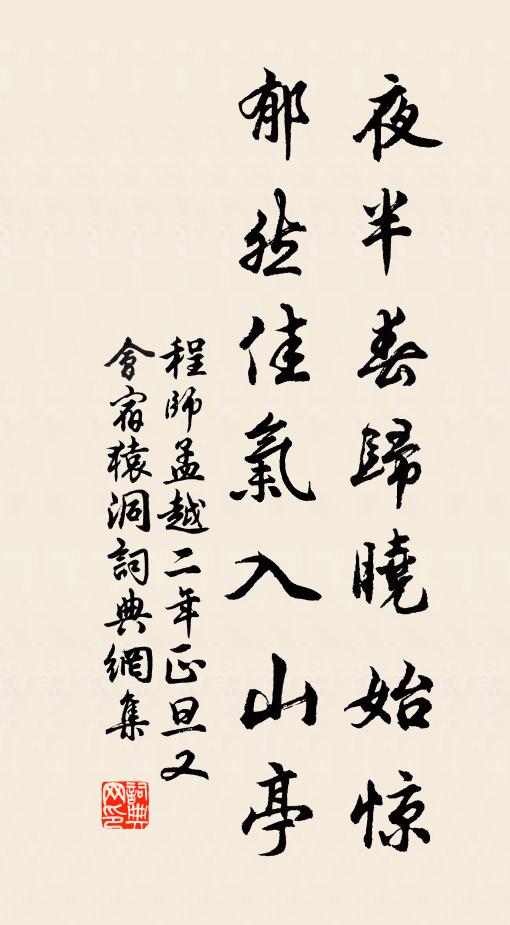 夜半春歸曉始惊
郁然佳氣入山亭
程師孟越二年正旦又
會宿猿洞詞典網集
詞典网印